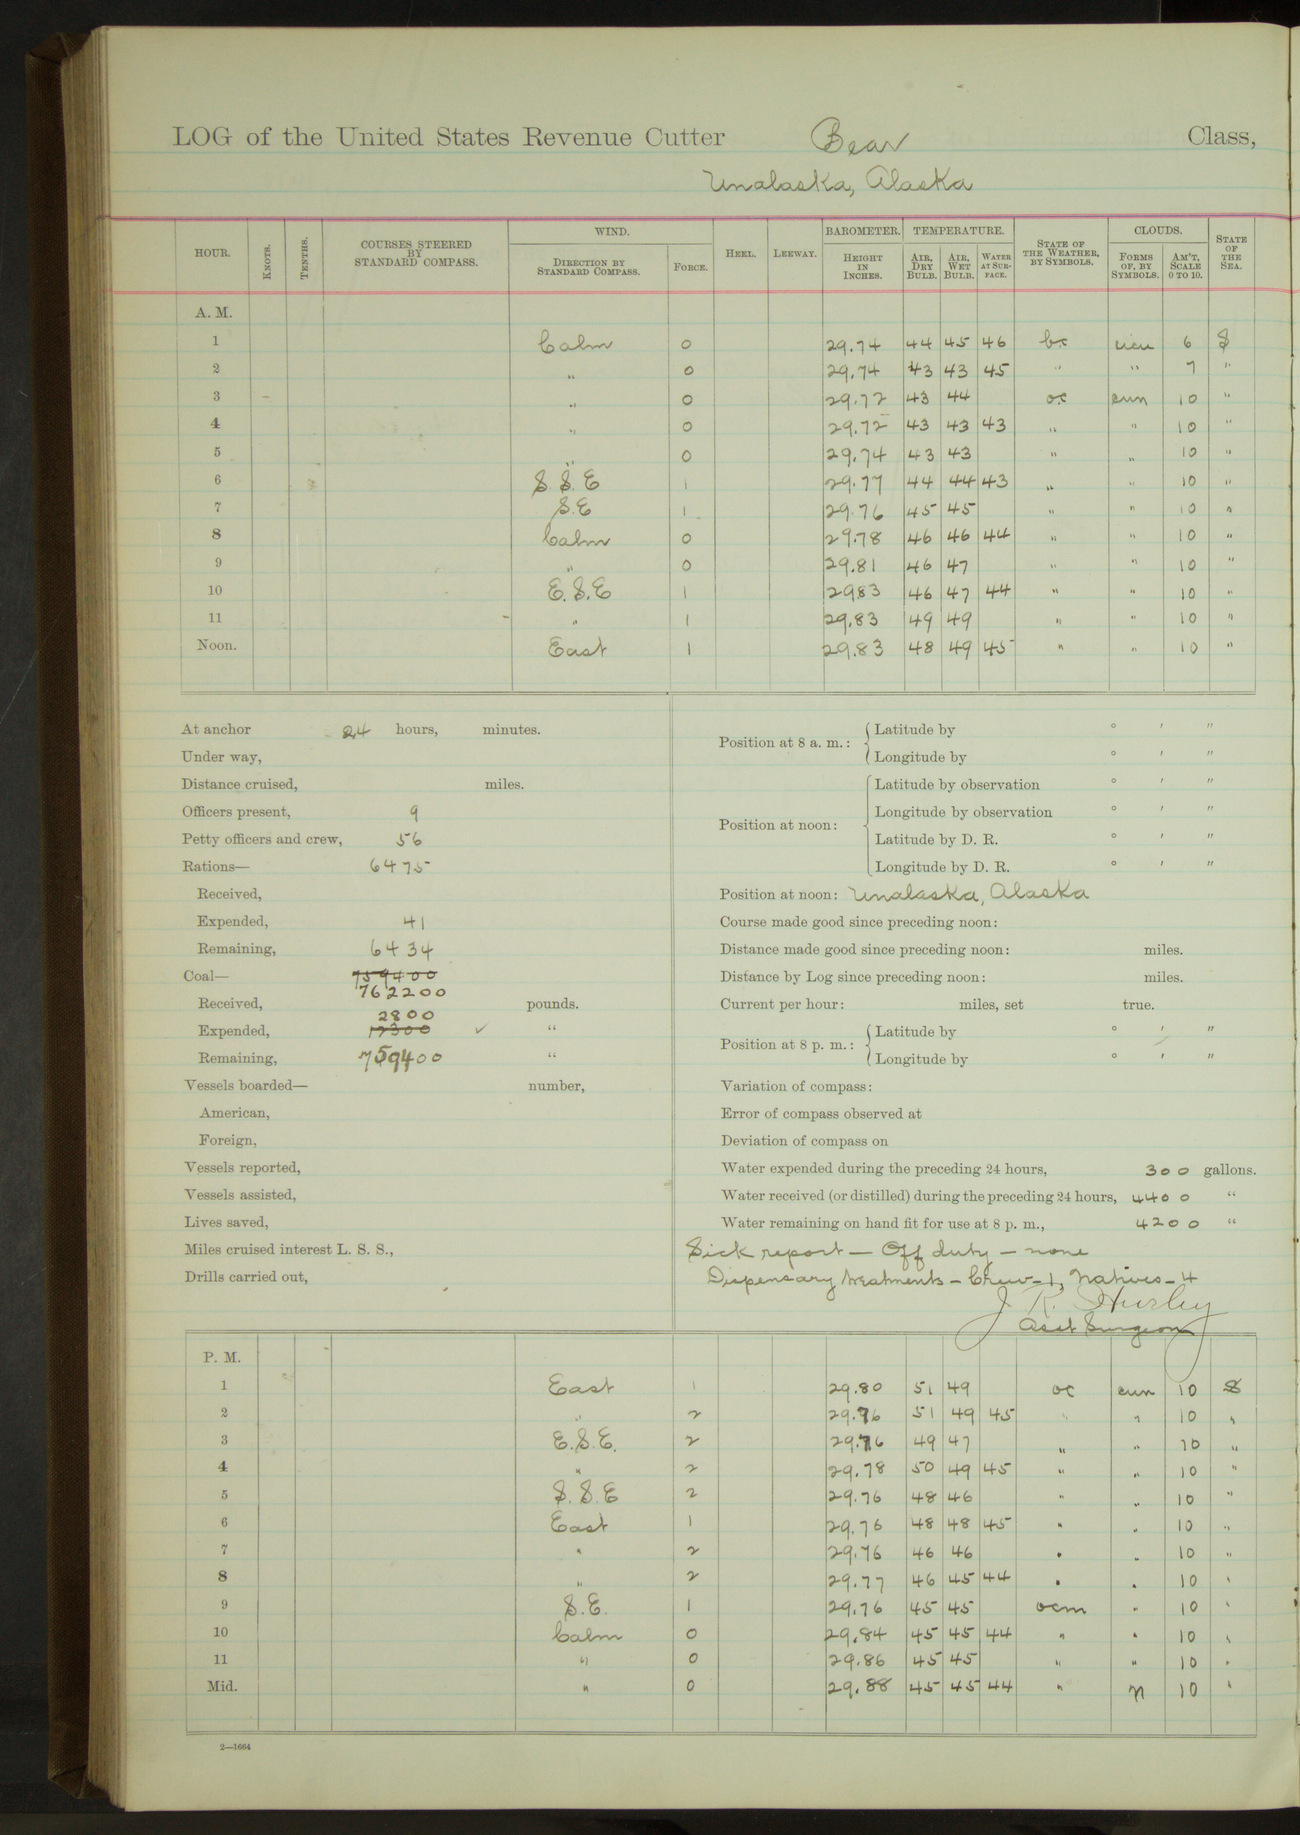 LOG of the United States Revenue Cutter Bear Class,
Unalaska, Alaska
HOUR. KNOTS. TENTHS. COURSES STEERED BY STANDARD COMPASS. WIND. DIRECTION BY STANDARD COMPASS. FORCE. HEEL. LEEWAY. BAROMETER. HEIGHT IN INCHES. TEMPERATURE. AIR, DRY BULB. AIR, WET BULB. WATER AT SURFACE. STATE OF THE WEATHER, BY SYMBOLS. CLOUDS. FORMS OF, BY SYMBOLS. AM'T, SCALE 0 TO 10. STATE OF THE SEA.
A. M.
1 Calm 0 29.74 44 45 46 bc 6 S
2 " 0 29.74 43 43 45 " " 7 "
3 " 0 29.72 43 44 oc cun 10 "
4 " 0 29.72 43 43 43 " " 10 "
5 " 0 29.74 43 43 " " 10 "
6 S.S.E 1 29.77 44 44 43 " " 10 "
7 S.E 1 29.76 45 45 " " 10 "
8 Calm 0 29.78 46 46 44 " " 10 "
9 " 0 29.81 46 47 " " 10 "
10 E.S.E 1 2983 46 47 44 " " 10 "
11 " 1 29.83 49 49 " " 10 "
Noon. East 1 29.83 48 49 45 " " 10 "
At anchor 24 hours, minutes.
Under way,
Distance cruised, miles.
Officers present, 9
Petty officers and crew, 56
Rations— 6475
Received,
Expended, 41
Remaining, 6434
Coal— 759400
762200
Received, pounds.
2800
Expended, 17300 ✓ "
Remaining, 759400 "
Vessels boarded— number,
American,
Foreign,
Vessels reported,
Vessels assisted,
Lives saved,
Miles cruised interest L. S. S.,
Drills carried out,
Position at 8 a. m.: Latitude by ° ′ ″
Longitude by ° ′ ″
Position at noon: Latitude by observation ° ′ ″
Longitude by observation ° ′ ″
Latitude by D. R. ° ′ ″
Longitude by D. R. ° ′ ″
Position at noon: Unalaska, Alaska
Course made good since preceding noon:
Distance made good since preceding noon: miles.
Distance by Log since preceding noon: miles.
Current per hour: miles, set true.
Position at 8 p. m.: Latitude by ° ′ ″
Longitude by ° ′ ″
Variation of compass:
Error of compass observed at
Deviation of compass on
Water expended during the preceding 24 hours, 300 gallons.
Water received (or distilled) during the preceding 24 hours, 4400 "
Water remaining on hand fit for use at 8 p. m., 4200 "
Sick report — Off duty — none
Dispensary treatments — Crew — 1, Natives — 4
J. R. Hurley
Asst Surgeon
P. M.
1 East 1 29.80 51 49 oc cun 10 S
2 " 2 29.76 51 49 45 " " 10 "
3 E.S.E. 2 29.76 49 47 " " 10 "
4 " 2 29.78 50 49 45 " " 10 "
5 S.S.E 2 29.76 48 46 " " 10 "
6 East 1 29.76 48 48 45 " " 10 "
7 " 2 29.76 46 46 " " 10 "
8 " 2 29.77 46 45 44 " " 10 "
9 S.E. 1 29.76 45 45 ocm " 10 "
10 Calm 0 29.84 45 45 44 " " 10 "
11 " 0 29.86 45 45 " " 10 "
Mid. " 0 29.88 45 45 44 " n 10 "
2—1664